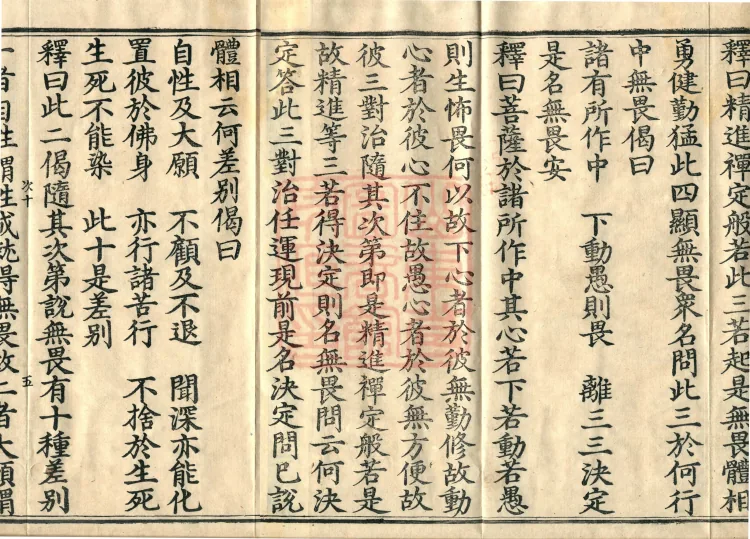 釋曰精進禪定般若此三若起是無畏體相
勇健勤猛此四顯無畏眾名問此三於何行
中無畏偈曰
諸有所作中　下動愚則畏　離三三決定
是名無畏安
釋曰菩薩於諸所作中其心若下若動若愚
則生怖畏何以故下心者於彼無勤修故動
心者於彼心不住故愚心者於彼無方便故
彼三對治隨其次第即是精進禪定般若是
故精進等三若得決定則名無畏問云何決
定答此三對治任運現前是名決定問已說
體相云何差別偈曰
自性及大願　不顧及不退　聞深亦能化
置彼於佛身　亦行諸苦行　不捨於生死
生死不能染　此十是差別
釋曰此二偈隨其次第說無畏有十種差別
次十　五
一者自性謂性成就得無畏故二者大願謂